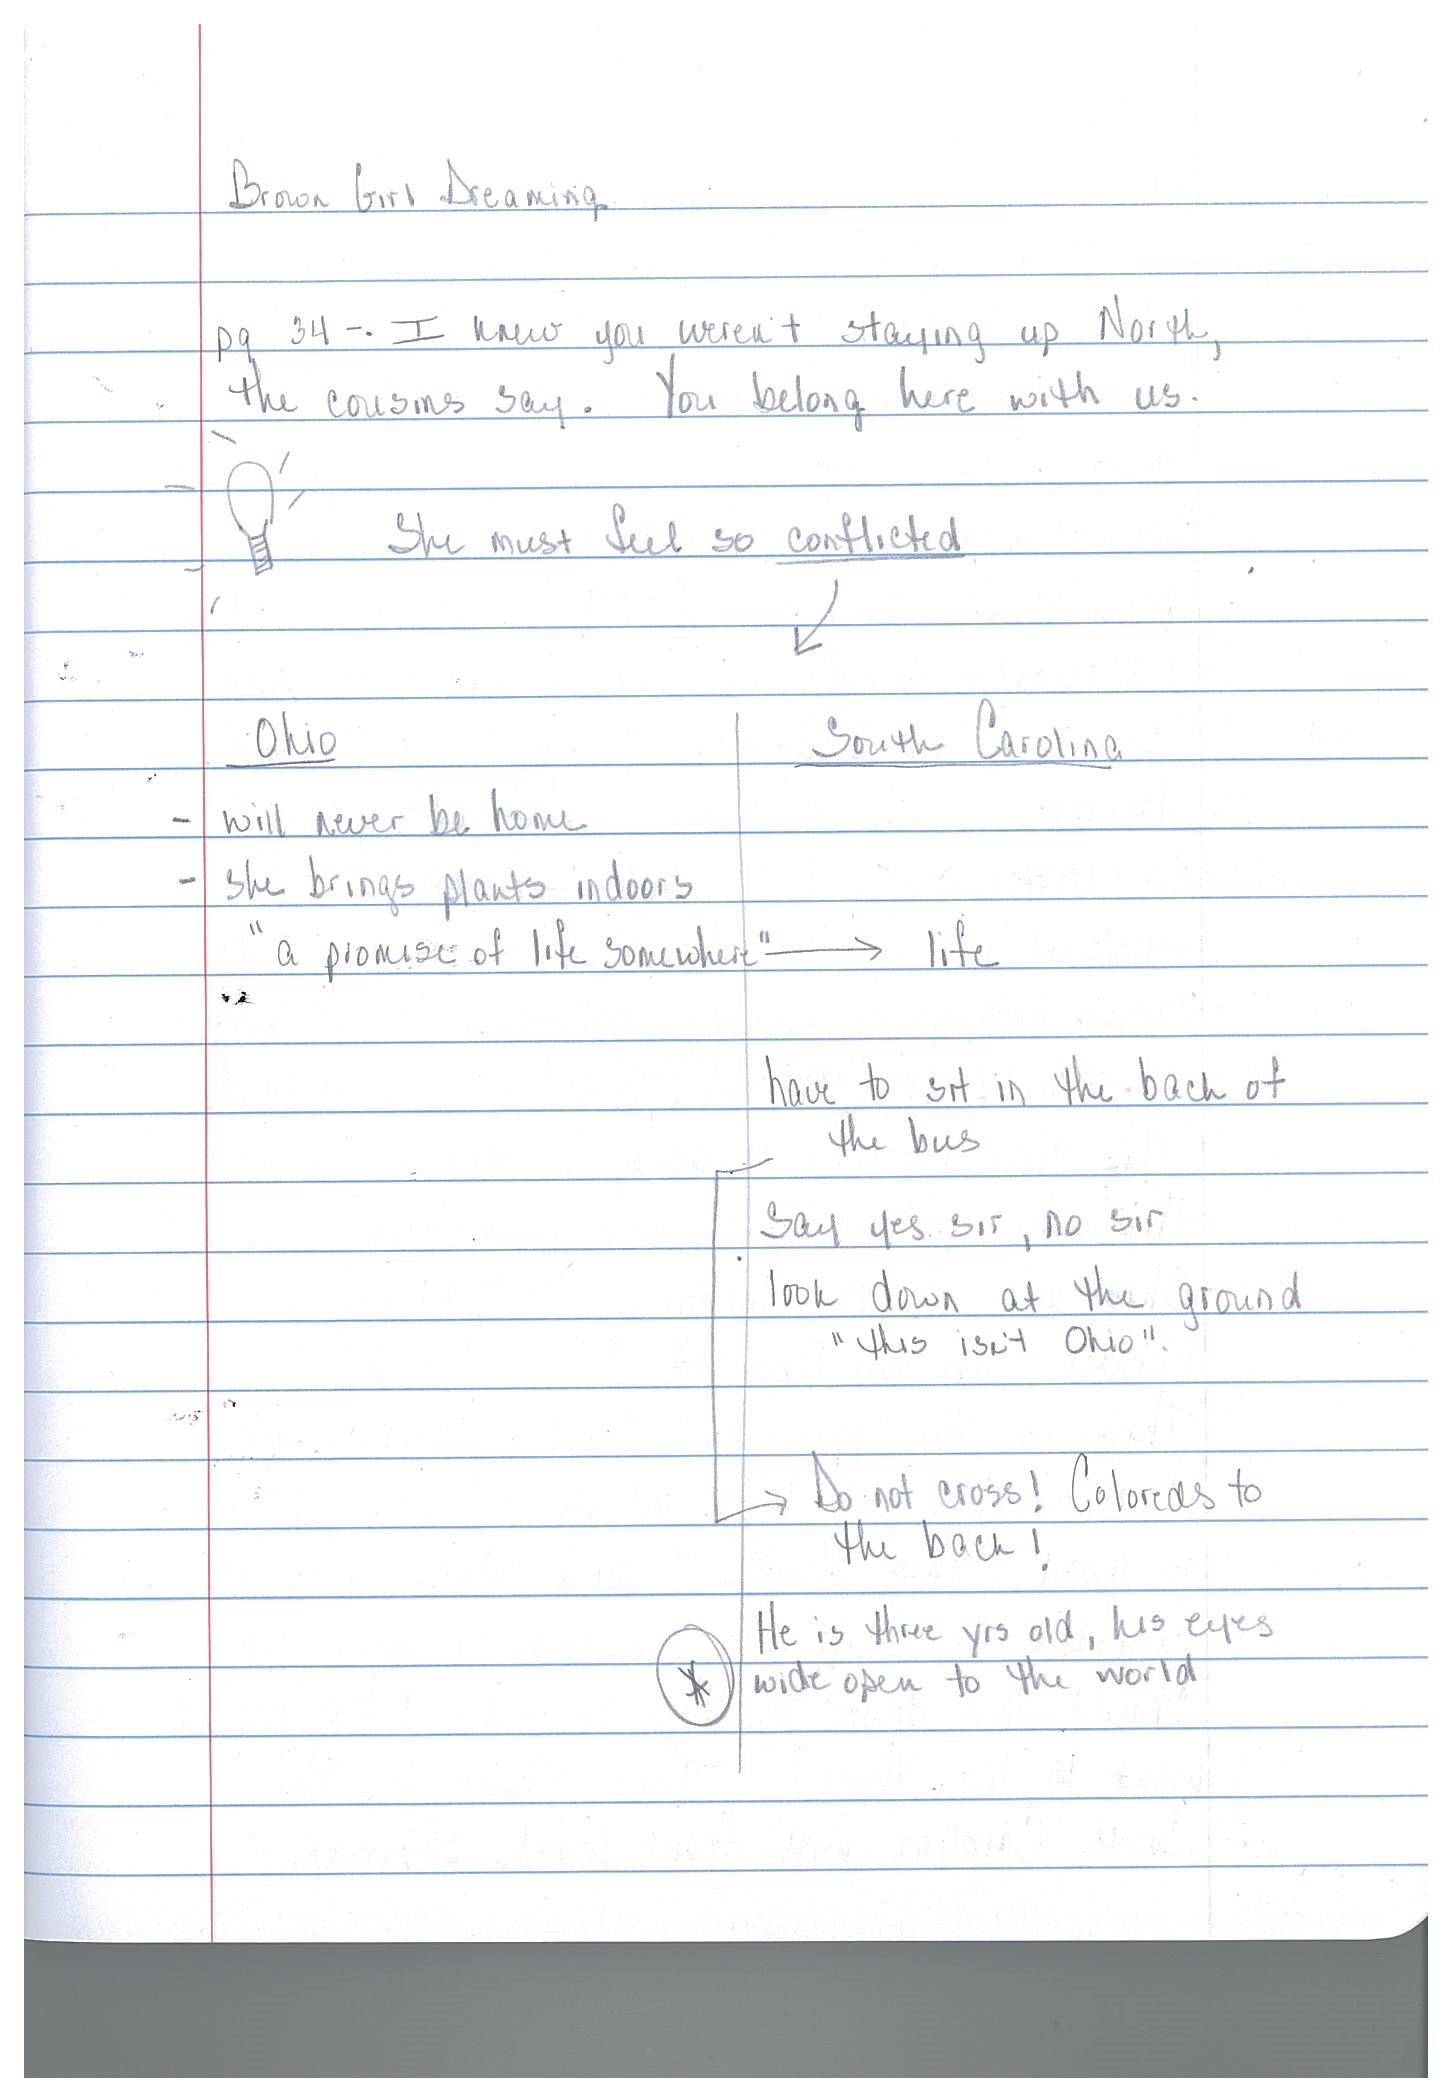 Brown Girl Dreaming
pg 34 -. I knew you weren't staying up North,
the cousins say. You belong here with us.
She must feel so conflicted
Ohio
South Carolina
- will never be home
- she brings plants indoors
"a promise of life somewhere" → life
have to sit in the back of
the bus
Say yes sir, no sir
look down at the ground
"this isn't Ohio".
→ Do not cross! Coloreds to
the back!
He is three yrs old, his eyes
* wide open to the world